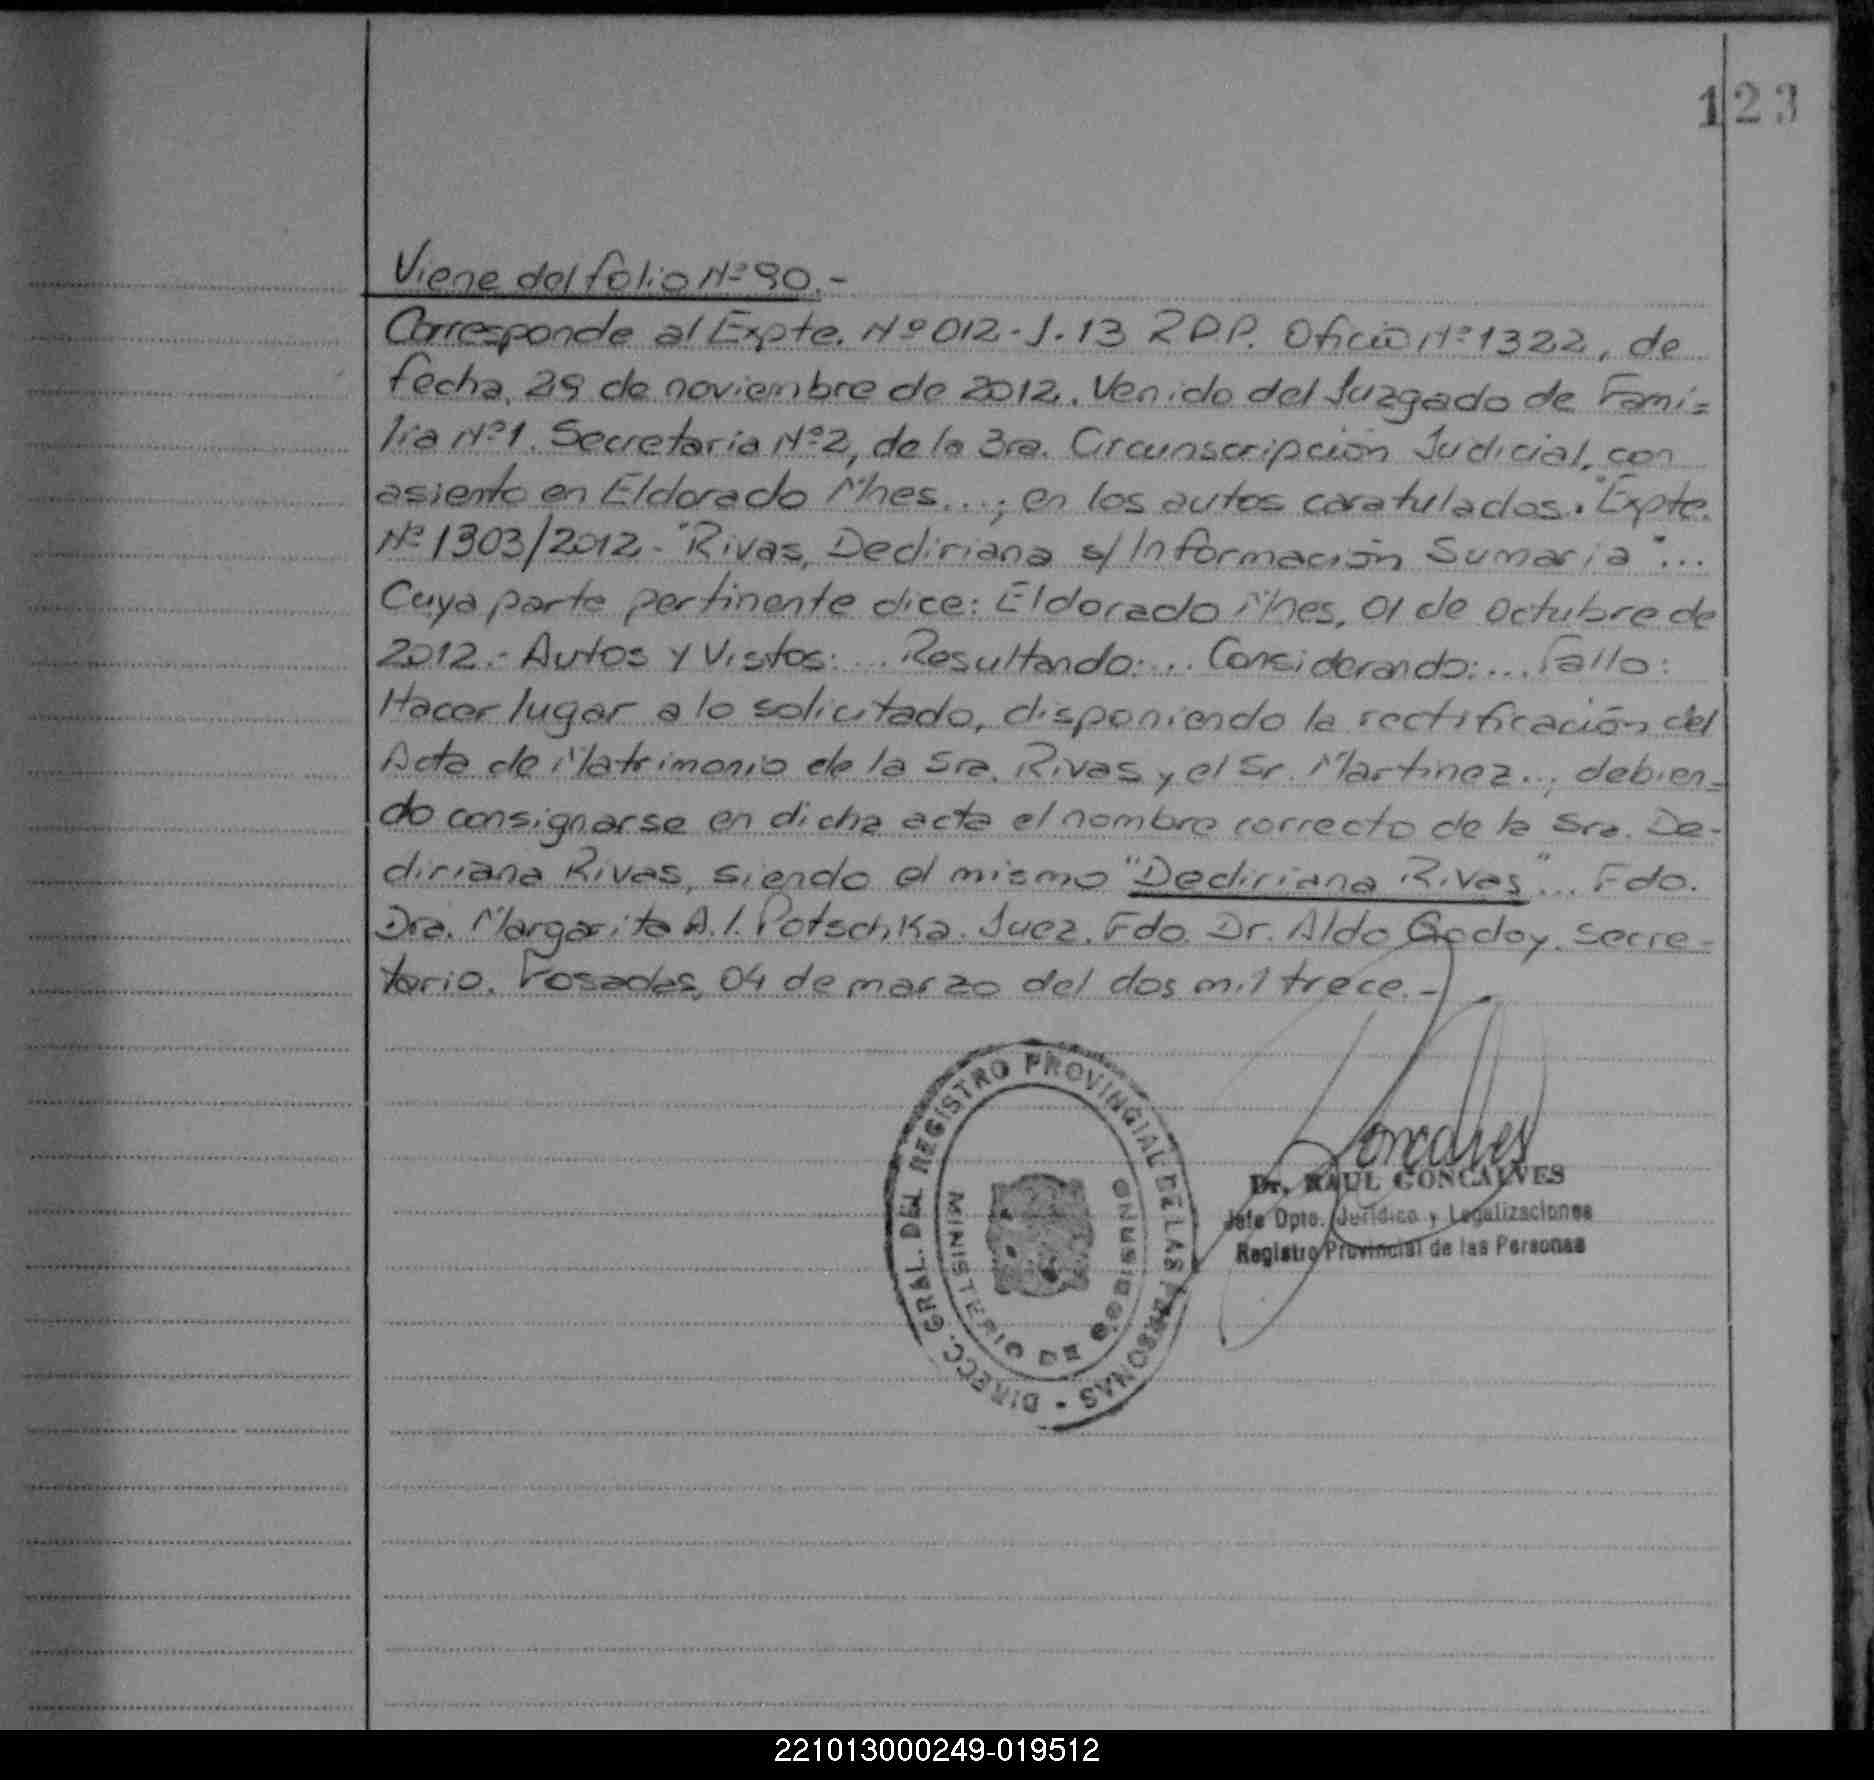 123
Viene del folio Nº 90.-
Corresponde al Expte. Nº 012-J-13 R.P.P. Oficio Nº 1322, de
fecha, 29 de noviembre de 2012. Venido del Juzgado de Fami=
lia Nº1. Secretaría Nº2, de la 3ra. Circunscripción Judicial, con
asiento en Eldorado Mnes...; en los autos caratulados. "Expte.
Nº 1303/2012.- "Rivas, Dediriana s/ Información Sumaria"...
Cuya parte pertinente dice: Eldorado Mnes, 01 de Octubre de
2012.- Autos y Vistos:... Resultando:... Considerando:... Fallo:
Hacer lugar a lo solicitado, disponiendo la rectificación del
Acta de Matrimonio de la Sra. Rivas y el Sr. Martinez..., debien=
do consignarse en dicha acta el nombre correcto de la Sra. De-
diriana Rivas, siendo el mismo "Dediriana Rivas"... Fdo.
Dra. Margarita A.I. Potschka. Juez. Fdo. Dr. Aldo Godoy. Secre=
tario. Posadas, 04 de marzo del dos mil trece.-
DIRECC. GRAL. DEL REGISTRO PROVINCIAL DE LAS PERSONAS -
MINISTERIO DE GOBIERNO
Goncalves
Dr. RAUL GONCALVES
Jefe Dpto. Jurídico y Legalizaciones
Registro Provincial de las Personas
221013000249-019512